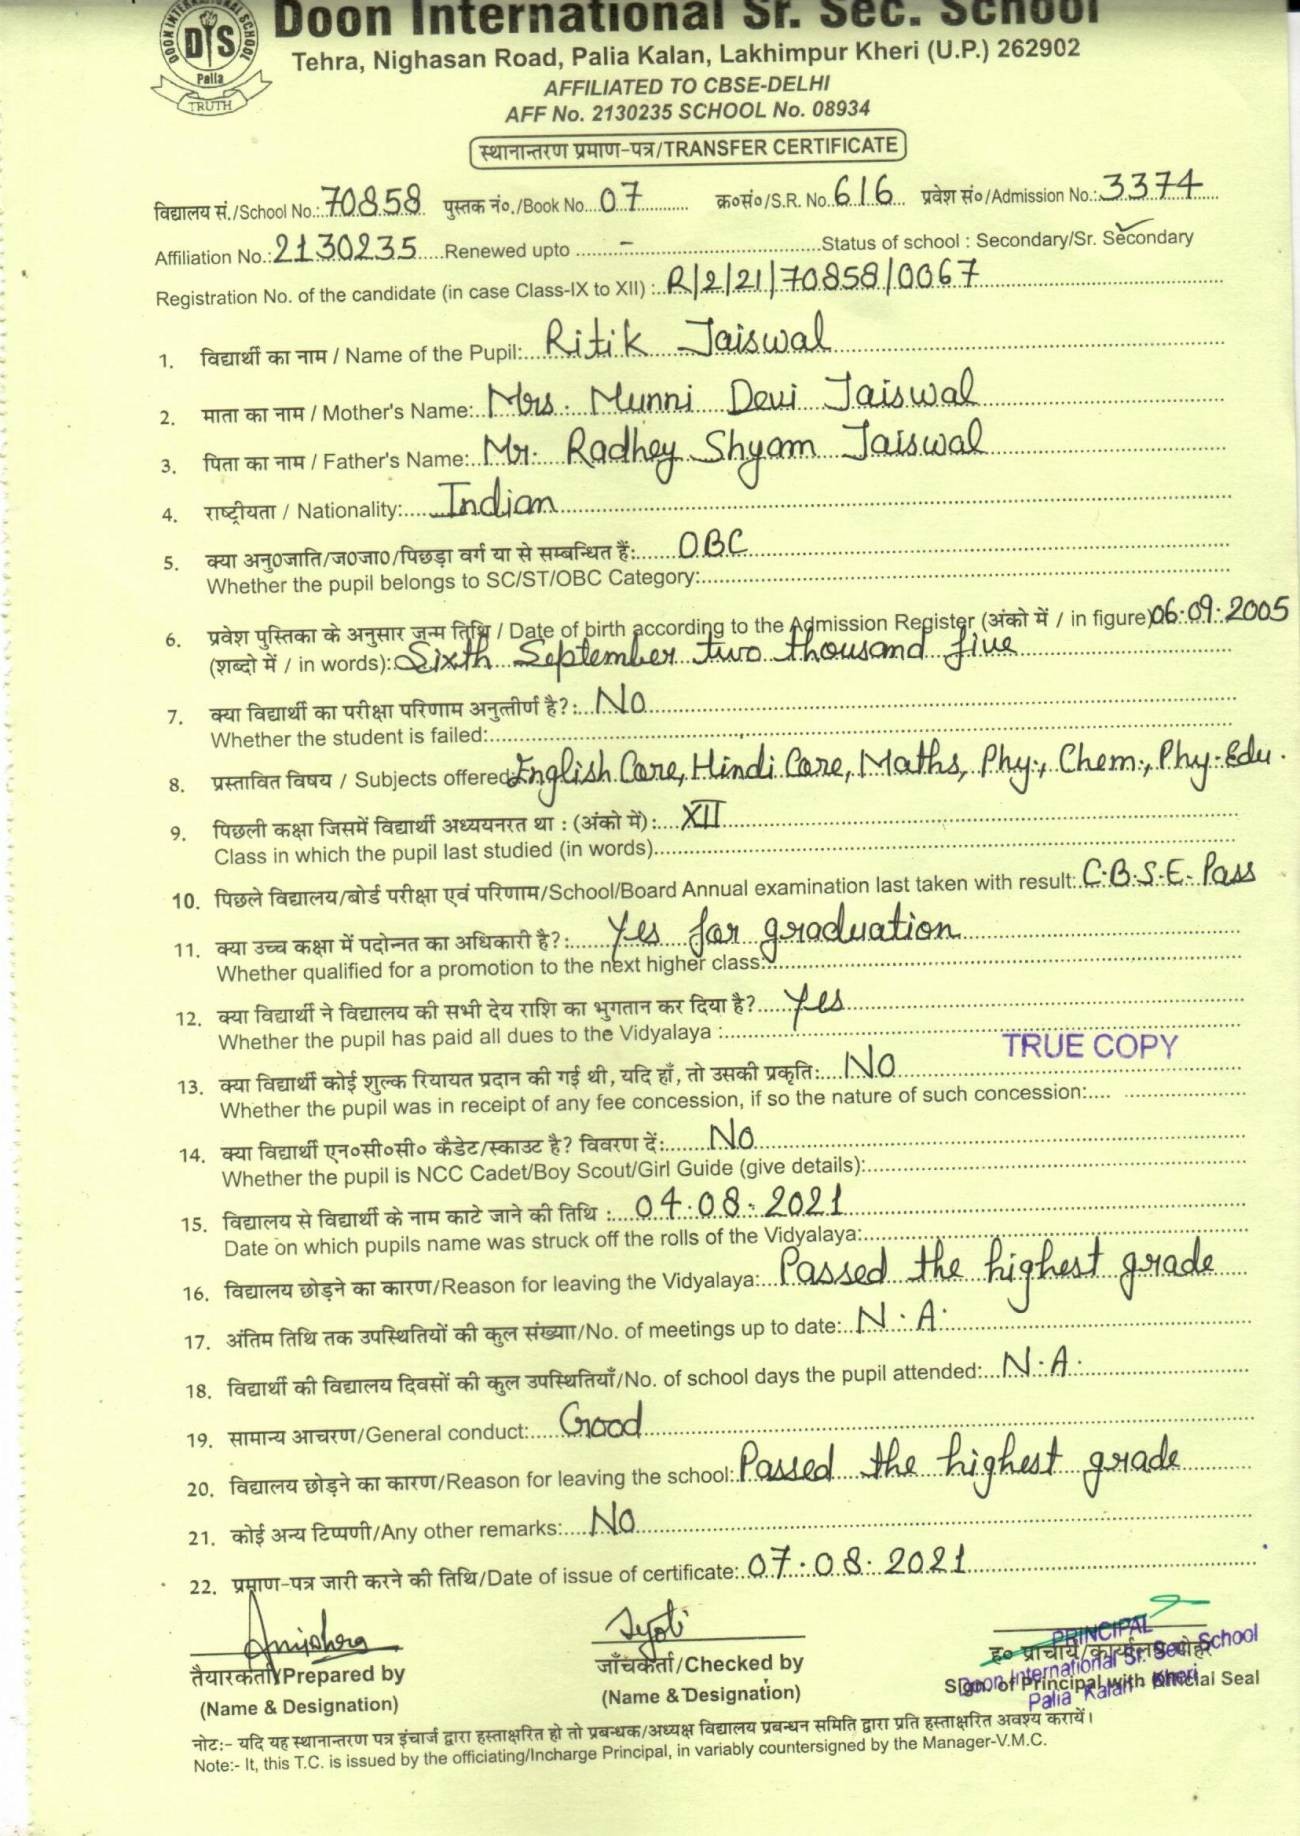 Doon International Sr. Sec. School
DOON INTERNATIONAL SCHOOL
DIS
Palia
TRUTH
Tehra, Nighasan Road, Palia Kalan, Lakhimpur Kheri (U.P.) 262902
AFFILIATED TO CBSE-DELHI
AFF No. 2130235 SCHOOL No. 08934
स्थानान्तरण प्रमाण-पत्र/TRANSFER CERTIFICATE
विद्यालय सं./School No.: 70858 पुस्तक नं०./Book No. 07 क्र०सं०/S.R. No. 616 प्रवेश सं०/Admission No.: 3374
Affiliation No.: 2130235 Renewed upto - Status of school : Secondary/Sr. Secondary
Registration No. of the candidate (in case Class-IX to XII) : R/2/21/70858/0067
1. विद्यार्थी का नाम / Name of the Pupil: Ritik Jaiswal
2. माता का नाम / Mother's Name: Mrs. Munni Devi Jaiswal
3. पिता का नाम / Father's Name: Mr. Radhey Shyam Jaiswal
4. राष्ट्रीयता / Nationality: Indian
5. क्या अनु0जाति/ज0जा0/पिछड़ा वर्ग या से सम्बन्धित हैं: OBC
Whether the pupil belongs to SC/ST/OBC Category:
6. प्रवेश पुस्तिका के अनुसार जन्म तिथि / Date of birth according to the Admission Register (अंको में / in figure) 06.09.2005
(शब्दो में / in words): Sixth September two thousand five
7. क्या विद्यार्थी का परीक्षा परिणाम अनुत्तीर्ण है?: No
Whether the student is failed:
8. प्रस्तावित विषय / Subjects offered: English Core, Hindi Core, Maths, Phy., Chem., Phy. Edu.
9. पिछली कक्षा जिसमें विद्यार्थी अध्ययनरत था : (अंको में): XII
Class in which the pupil last studied (in words)
10. पिछले विद्यालय/बोर्ड परीक्षा एवं परिणाम/School/Board Annual examination last taken with result: C.B.S.E. Pass
11. क्या उच्च कक्षा में पदोन्नत का अधिकारी है?: Yes for graduation
Whether qualified for a promotion to the next higher class:
12. क्या विद्यार्थी ने विद्यालय की सभी देय राशि का भुगतान कर दिया है? Yes
Whether the pupil has paid all dues to the Vidyalaya :
TRUE COPY
13. क्या विद्यार्थी कोई शुल्क रियायत प्रदान की गई थी, यदि हाँ, तो उसकी प्रकृति: No
Whether the pupil was in receipt of any fee concession, if so the nature of such concession:
14. क्या विद्यार्थी एन०सी०सी० कैडेट/स्काउट है? विवरण दें: No
Whether the pupil is NCC Cadet/Boy Scout/Girl Guide (give details):
15. विद्यालय से विद्यार्थी के नाम काटे जाने की तिथि : 04.08.2021
Date on which pupils name was struck off the rolls of the Vidyalaya:
16. विद्यालय छोड़ने का कारण/Reason for leaving the Vidyalaya: Passed the highest grade
17. अंतिम तिथि तक उपस्थितियों की कुल संख्या/No. of meetings up to date: N.A.
18. विद्यार्थी की विद्यालय दिवसों की कुल उपस्थितियाँ/No. of school days the pupil attended: N.A.
19. सामान्य आचरण/General conduct: Good
20. विद्यालय छोड़ने का कारण/Reason for leaving the school: Passed the highest grade
21. कोई अन्य टिप्पणी/Any other remarks: No
22. प्रमाण-पत्र जारी करने की तिथि/Date of issue of certificate: 07.08.2021
Jyoti
तैयारकर्ता/Prepared by
(Name & Designation)
जाँचकर्ता/Checked by
(Name & Designation)
ह० प्राचार्य/कार्यालय मोहर
Sign. of Principal with Official Seal
PRINCIPAL
Doon International Sr. Sec. School
Palia Kalan Kheri
नोट:- यदि यह स्थानान्तरण पत्र इंचार्ज द्वारा हस्ताक्षरित हो तो प्रबन्धक/अध्यक्ष विद्यालय प्रबन्धन समिति द्वारा प्रति हस्ताक्षरित अवश्य करायें।
Note:- It, this T.C. is issued by the officiating/Incharge Principal, in variably countersigned by the Manager-V.M.C.